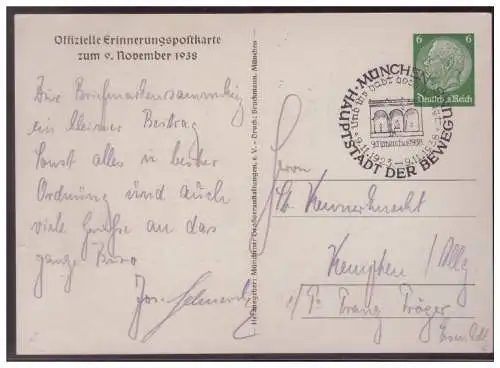 Offizielle Erinnerungspostkarte
zum 9. November 1938
Zur Briefmarkensammlung
ein kleiner Beitrag
Sonst alles in bester
Ordnung und auch
viele Grüße an das
ganze Büro
Herausgeber: Münchner Großveranstaltungen, e. V. – Druck: Bruckmann, München
6 6
Deutsches Reich
MÜNCHEN
Und ihr habt doch gesiegt
9.11.1923 – 9.11.1938
HAUPTSTADT DER BEWEGUNG
Herrn
Kempten / Allg
Franz Tröger